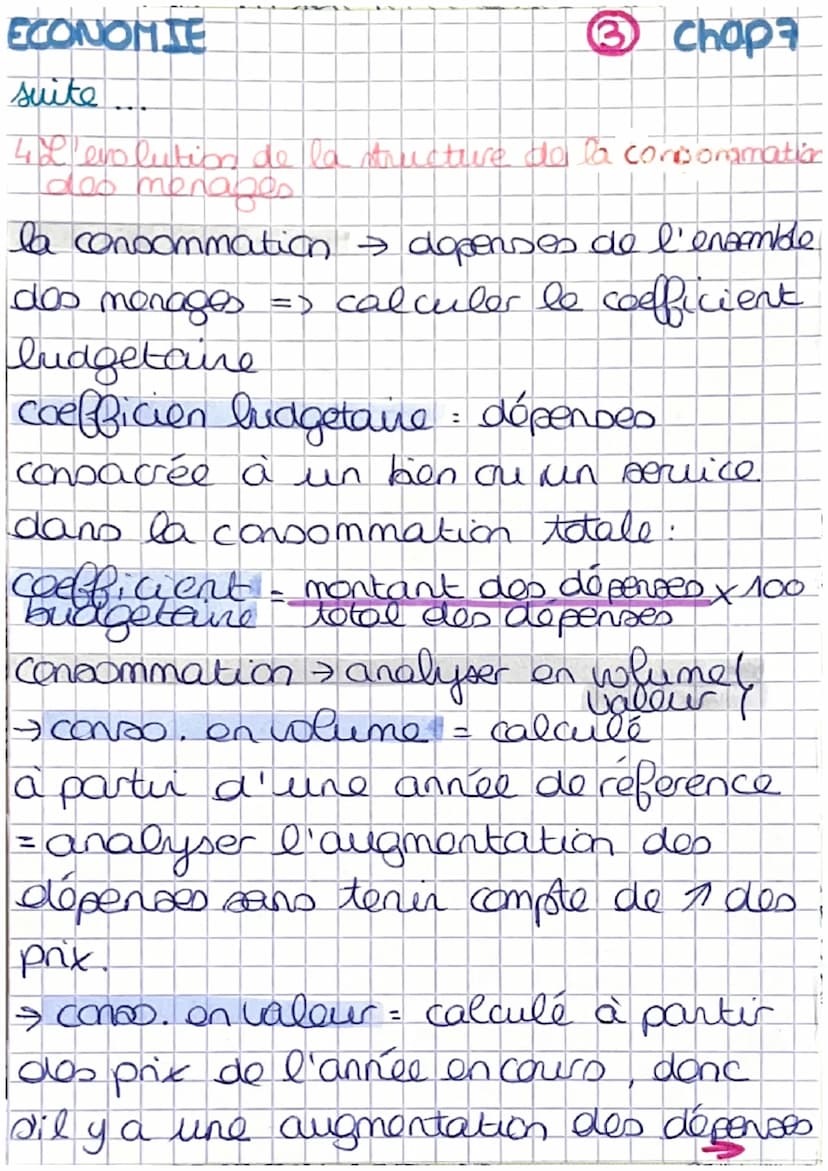 ECONOMIE ③ Chap7
suite ...
4 L'evolution de la structure de la consommation
des menages
la consommation → depenses de l'ensemble
des menages => calculer le coefficient
budgetaire
coefficien budgetaire : dépenses
consacrée à un bien ou un service
dans la consommation totale :
coefficient = montant des dépenses x 100
budgetaire total des depenses
consommation → analyser en volume (
valeur (
→ conso. en volume = calculé
à partir d'une année de réference
= analyser l'augmentation des
dépenses sans tenir compte de ↗ des
prix.
→ conso. en valeur = calculé à partir
des prix de l'année en cours, donc
s'il y a une augmentation des dépenses
→